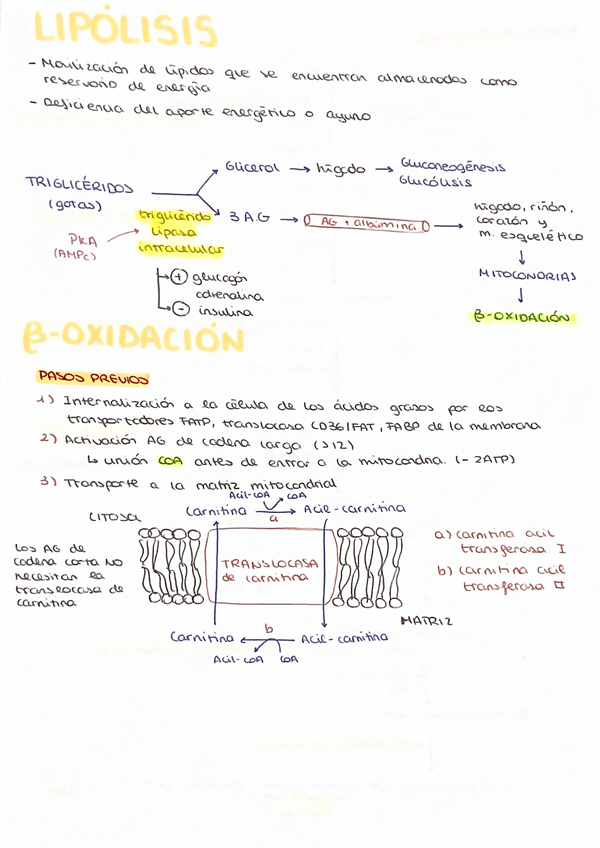 LIPÓLISIS
- Movilización de lípidos que se encuentran almacenados como
reservorio de energía
- Deficiencia del aporte energético o ayuno
TRIGLICÉRIDOS
(gotas)
Glicerol → hígado → Gluconeogénesis
Glucólisis
triglicérido
lipasa
intracelular
PKA
(AMPc)
3 AG → AG + albúmina →
hígado, riñón,
corazón y
m. esquelético
↓
MITOCONDRIAS
↓
β-OXIDACIÓN
+ glucagón
adrenalina
- insulina
β-OXIDACIÓN
PASOS PREVIOS
1) Internalización a la célula de los ácidos grasos por los
transportadores FATP, translocasa CD36/FAT, FABP de la membrana
2) Activación AG de cadena larga (>12)
↳ unión COA antes de entrar a la mitocondria. (- 2ATP)
3) Transporte a la matriz mitocondrial
Acil-COA COA
Carnitina → Acil-carnitina
a
CITOSOL
Los AG de
cadena corta NO
necesitan la
translocasa de
carnitina
TRANSLOCASA
de carnitina
a) carnitina acil
transferasa I
b) carnitina acil
transferasa II
MATRIZ
b
Carnitina ← Acil-carnitina
Acil-COA COA